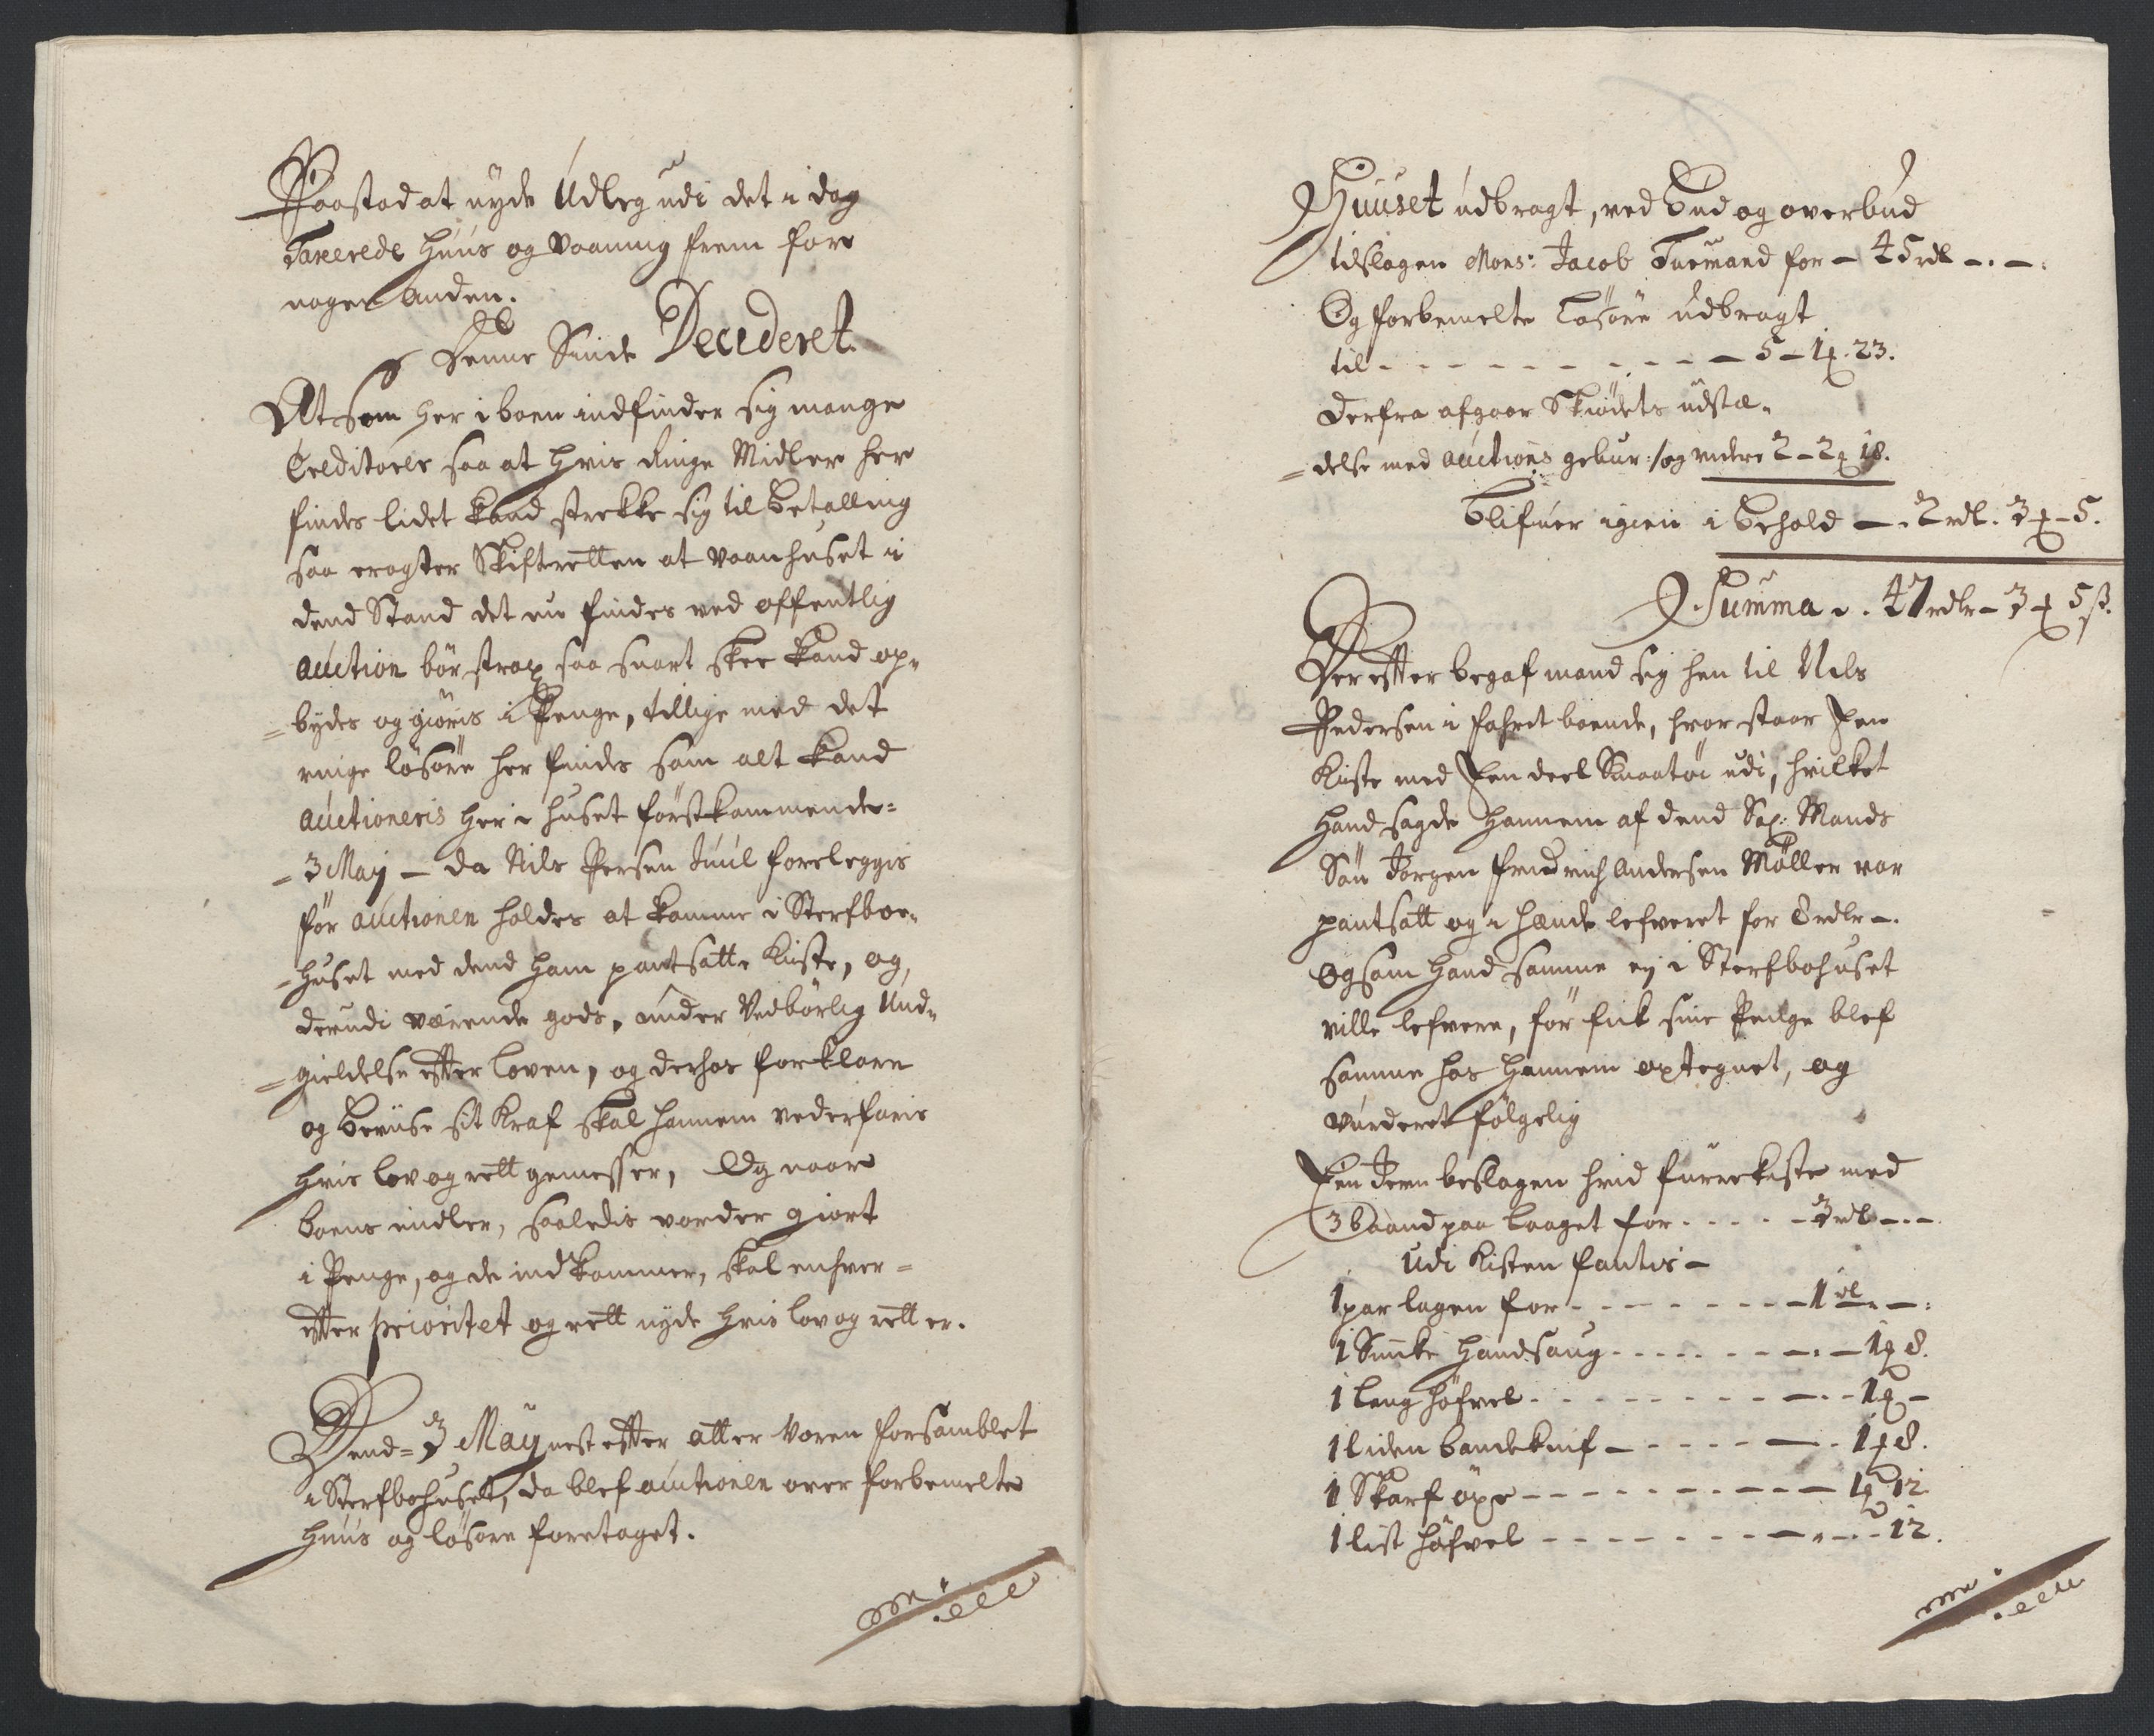 Paastod at nyde Udleg udi det i dag
Taxerede Huus og Vaaning frem for
nogen Anden.
Denne Sinde Decideret
At som her i boen indfinder sig mange
Creditorer saa at hvis ringe Midler her
findes lidet kand strekke sig til Betalling
saa eragter Skiftretten at Vaanhuset i
dend Stand det nu findes ved offentlig
auction bör strax saa snart skee kand op-
=bydes og giöris i Penge, tillige med det
ringe lösöre her findes som alt kand
auctioneris her i Huset förstkommende=
=3 Maij — da Nils Persen Juul foreleggis
för auctionen holdes at komme i Sterfboe-
=huset med dend ham pantsatte Kiiste, og,
derudi værende gods, under Vedbörlig Und-
=gieldelse efter Loven, og derhos forklare
og beviise sit Kraf skal hannem vederfaris
hvis lov og rett gemesser, Og naar
boens midler, saaledis vorder giort
i Penge, og de indkommer, skal enhver=
efter prioritet og rett nyde hvis lov og rett er.
Dend= 3 Maij nest efter atter Voren forsamblet
i Sterfbohuset, da blef auctionen over forbemelte
Huus og lösöre foretaget.
Huuset udbragt, ved Bud og overbud
tilslagen Mons: Jacob Tuemand for — 45 rdl —.—.
Og forbemelte Lösöre udbragt
til - - - - - - - - — 5 — 1 ꝑ. 23.
Derfra afgaar Skiödets udstæ-
=delse med auctions gebur:/og videre 2 — 2 ꝑ 18.
Blifuer igien i Behold —. 2 rdl. 3 ꝑ — 5.
Summa . 47 rdlr — 3 ꝑ 5 ß.
Derefter begaf mand sig hen til Nils
Pedersen i boende, hvor staar Een
Kiiste med Een deel Smaatöi udi, hvilket
Hand sagde Hannem af dend Sal: Mands
Sön Jörgen Friedrich Andersen Möller var
pantsatt og i Hænde lefveret for 8 rdlr —.
Og som Hand samme ej i Sterfbohuset
ville lefvere, för fik sine Penge blef
samme hos Hannem optegnet, og
vurderet fölgelig
Een Jern beslagen hvid furrekiste med
3 Baand paa Laaget for - - - - - 3 rdl —.—
Udi Kisten fantes —
1 par lagen for - - - - - - - — 1 rdl —:
1 Handsaug - - - - - - —.— 1 ꝑ 8.
1 lang höfvel - - - - - - - —.-- 1 ꝑ —
1 liden bandeknif — - - - - —. 1 ꝑ 8.
1 Skarf öxe — - - - - - - — 1 ꝑ 12
1 list höfvel - - - - - - —.—.- 12.